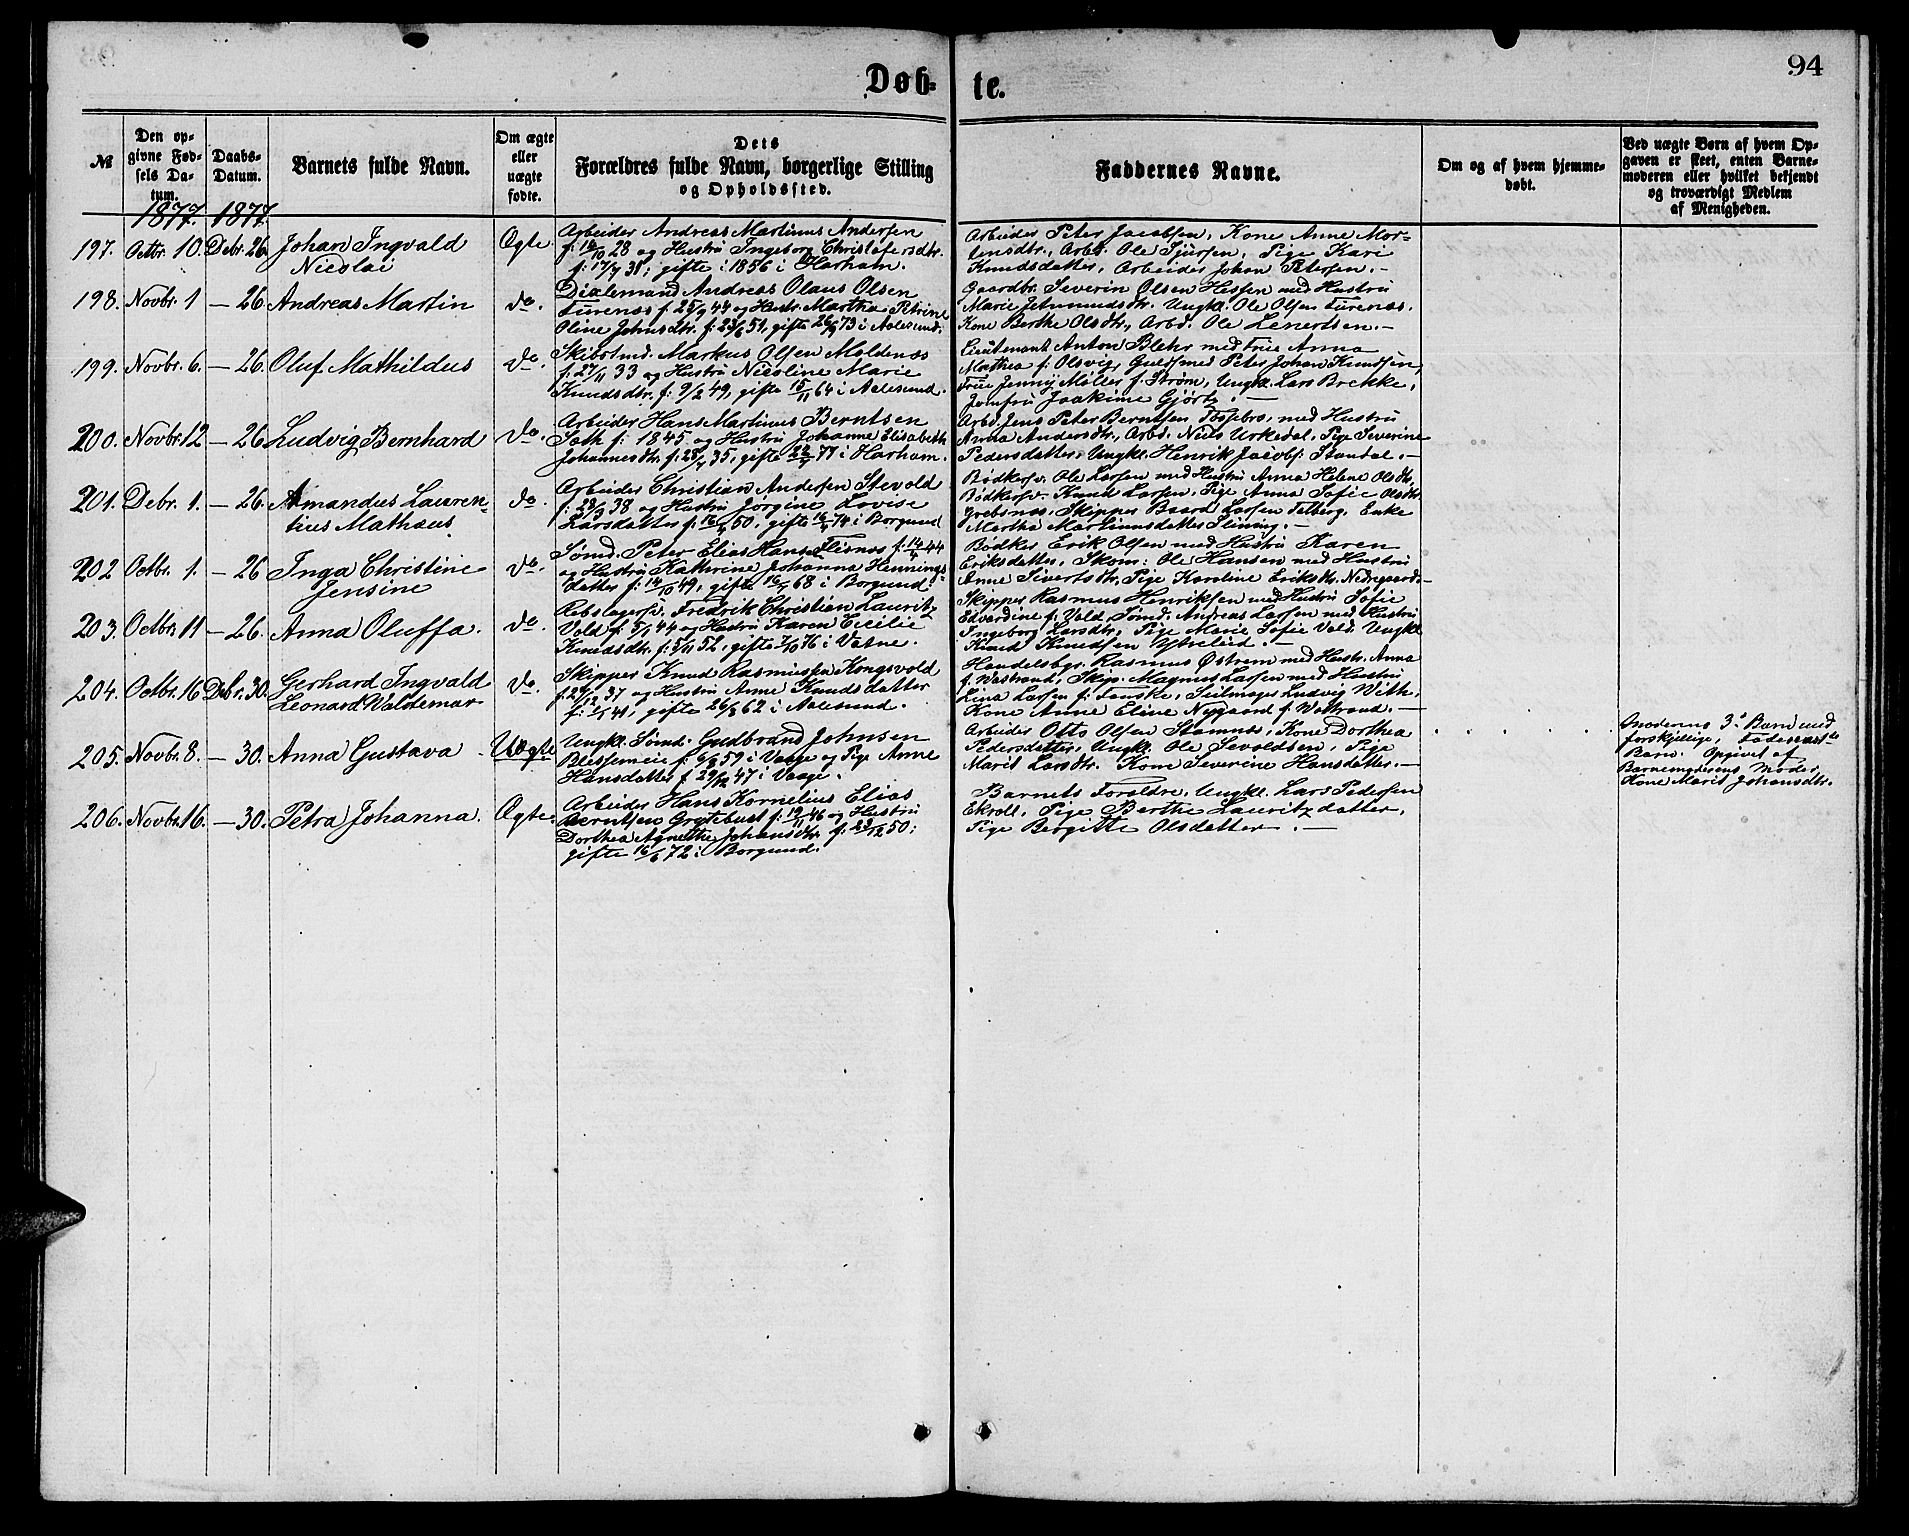 94
Døb-
te.
№
Den op-
givne Fød-
sels Da-
tum.
Daabs-
Datum.
Barnets fulde Navn.
Om ægte
eller
uægte
fødte.
Dets
Forældres fulde Navn, borgerlige Stilling
og Opholdssted.
Faddernes Navne.
Om og af hvem hjemme-
døbt.
Ved uægte Børn af hvem Op-
gaven er skeet, enten Barne-
moderen eller hvilket bekjendt
og troværdigt Medlem
af Menigheden.
1877. 1877.
197. Octbr. 10. Debr. 26. Johan Ingvald
Nicolai
Ægte
Arbeider Andreas Martinus Andersen
f: 14/10 28 og Hustru Ingeborg Christofersdtr.
f: 17/7 31; gifte i 1856 i Harham.
Arbeider Peter Jacobsen, Kone Anne Mor-
tensdtr., Arbd. Ole Sjursen, Pige Kari
Knudsdatter, Arbeider Johan Petersen.—
198. Novbr. 1 — 26. Andreas Martin
do.
Andreas Olaus Olsen
Furenæs f: 25/9 49 og Hustr. Martha Petrine
Oline Johnsdtr. f: 23/6 51, gifte 26/9 73 i Aalesund.
Gaardbr. Severin Olsen Hessen med Hustru
Marie Jetmundsdtr. Ungkl. Ole Olsen Furenæs.
Kone Berthe Olsdtr., Arbd. Ole Lenertsen.—
199. Novbr. 6. — 26. Oluf Mathildus
do.
Skibstmd. Markus Olsen Moldenæs
f. 27/11 33 og Hustru Nicoline Marie
Knudsdtr. f: 9/2 49, gifte 15/11 64 i Aalesund.
Lieutenant Anton Blehr med Frue Anna
Mathea f: Olsvig, Guldsmed Peter Johan Knudsen,
Frue Jenny Møller f. Strøm, Ungk. Lars Brekke,
Jomfru Joakime Gjørtz.—
200. Novbr. 12 — 26. Ludvig Bernhard
do.
Arbeider Hans Martinus Berntsen
f: 1845 og Hustru Johanne Elisabeth
Johannesdtr. f: 28/4 35, gifte 22/4 77 i Harham.
Arbd. Jens Peter Berntsen med Hustru
Anna Andersdtr., Arbd. Niels Urkedal, Pige Severine
Pedersdatter, Ungkl. Henrik Jacobs. Standal.—
201. Debr. 1. — 26. Amandus Lauren-
tius Mathæus
do.
Arbeider Christian Andersen Stevold
f: 22/9 38 og Hustru Jørgine Lovise
Larsdatter f: 16/6 50, gifte 16/4 74 i Borgund
Bødkersv. Ole Larsen med Hustru Anna Helene Olsdtr.
Bødkersv. Knud Larsen, Pige Anna Sofie Olsdtr.
Grebsnæs. Skipper Baard Larsen Telberg, Enke
Martha Martinusdatter Slining.—
202 Octbr. 1. — 26 Inga Christine
Jensine
do.
Sømd. Peter Elias Hans. Flisnæs f: 14/4 44
og Hustru Kathrine Johanna Hennings-
datter f: 14/10 49, gifte 16/7 68 i Borgund.
Bødker Erik Olsen med Hustru Karen
Eriksdatter, Skom: Ole Hansen med Hustru
Anne Sivertsdtr., Pige Karoline Eriksdtr. Nedregaard.—
203. Octbr. 11 — 26. Anna Oluffa.
do.
Rebslagersv. Fredrik Christian Lauritz
Vold f: 5/1 44 og Hustru Karen Cecilie
Knudsdtr. f: 5/11 52, gifte 7/10 76 i Vatne.
Skipper Rasmus Henriksen med Hustru Sofie
Edvardine f. Vold, Sømd. Andreas Larsen med Hustru
Ingeborg Larsdtr., Pige Marie Sofie Vold. Ungkl
Knud Knudsen Ytreleid.—
204. Octbr. 16 Debr. 30. Gerhard Ingvald
Leonard Valdemar
do.
Skipper Knud Rasmussen Kongsvold
f. 27/12 37 og Hustru Anne Knudsdatter
f: 2/1 41, gifte 26/8 62 i Aalesund.
Handelsbgr. Rasmus Østrem med Hustr. Anna
f. Wastrand, Skip. Magnus Larsen med Hustru
Lina Larsen f: Fanske, Seilmager Ludvig With,
Kone Anne Eline Nygaard f. Wattrand.—
205. Novbr. 8. — 30. Anna Gustava
Uægte
Ungkl. Sømd. Gudbrand Johnsen
Blessemeie f: 9/8 59 i Vaage og Pige Anne
Hansdatter f. 29/12 47 i Vaage.
Arbeider Otto Olsen Stamnes, Kone Dorthea
Pedersdatter, Ungkl. Ole Sevoldsen, Pige
Marit Larsdtr. Kone Severine Hansdatter.—
Moderens 3die Barn med
forskjellige, Faderens 1ste
Barn. Opgivet af
Barnemoderens Moder
Kone Marit Johansdtr.
206. Novbr. 16. — 30. Petra Johanna.
Ægte.
Arbeider Hans Kornelius Elias
Berntsen Grytebust f: 19/11 46 og Hustru
Dorthea Agnethe Johansdtr. f: 23/12 50;
gifte 16/6 72 i Borgund.
Barnets Forældre. Ungkl. Lars Pedersen
Ekroll, Pige Berthe Lauritzdatter,
Pige Bergitte Olsdatter.—